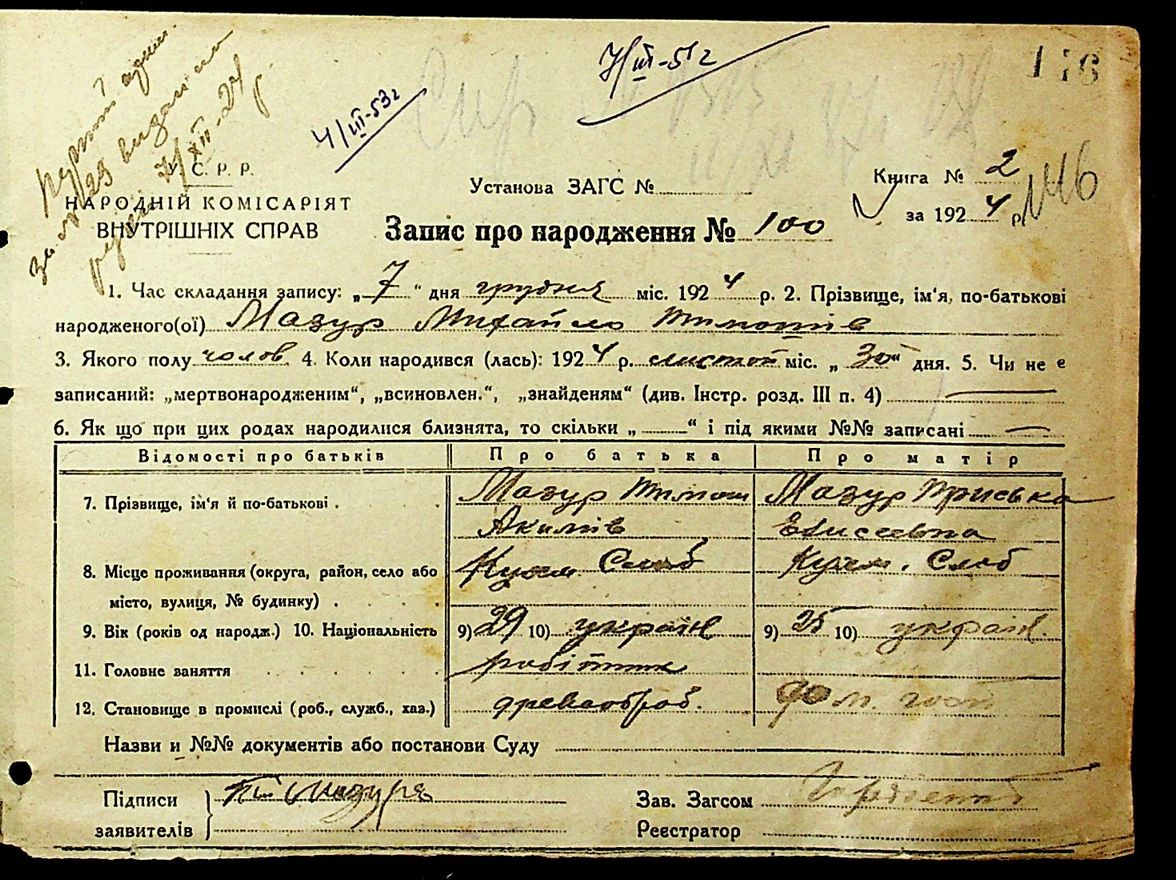 7/III-51 г
176
4/III-53 г
7/XII-24 р.
У. С. Р. Р.
НАРОДНІЙ КОМІСАРІЯТ
ВНУТРІШНІХ СПРАВ
Установа ЗАГС №
Книга № 2
за 1924 р.
Запис про народження № 100
1. Час складання запису: „7" дня грудня міс. 1924 р. 2. Прізвище, ім'я, по-батькові
народженого(ої) Мазур Михайло Тимошів
3. Якого полу чолов. 4. Коли народився (лась): 1924 р. листоп міс. „30" дня. 5. Чи не є
записаний: „мертвонародженим", „всиновлен.", „знайденям" (див. Інстр. розд. III п. 4) —
6. Як що при цих родах народилися близнята, то скільки „ " і під якими №№ записані —
Відомості про батьків Про батька Про матір
7. Прізвище, ім'я й по-батькові . Мазур Тимош Мазур Приська
Якимів Елисеевна
8. Місце проживання (округа, район, село або Кузем. Слоб Кузем. Слоб
місто, вулиця, № будинку) .
9. Вік (років од народж.) 10. Національність 9) 29 10) україн 9) 25 10) україн.
11. Головне заняття робітник
12. Становище в промислі (роб., служб., хаз.) древооброб. дом. госп
Назви и №№ документів або постанови Суду
Підписи Мазур Зав. Загсом
заявителів Реєстратор